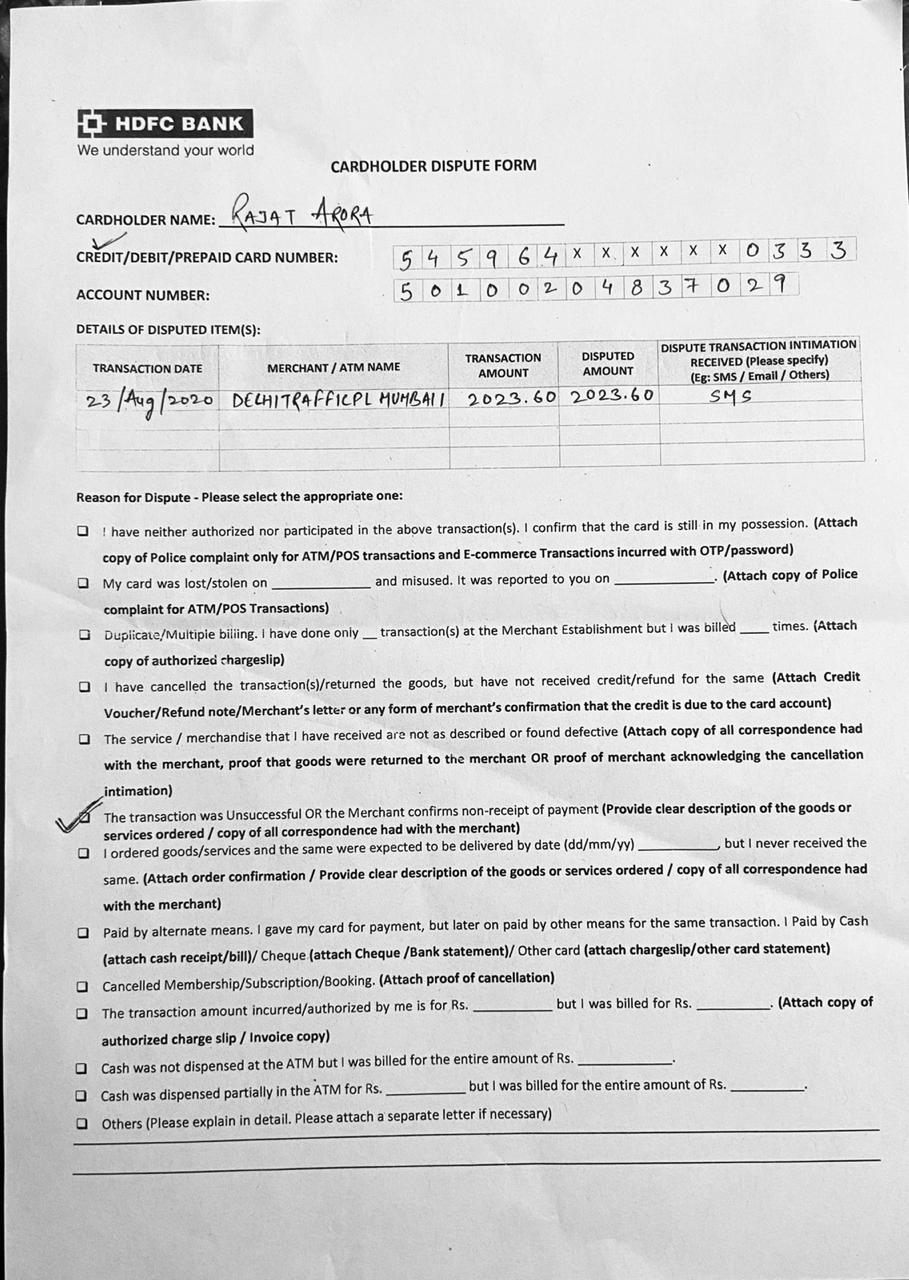 HDFC BANK
We understand your world
CARDHOLDER DISPUTE FORM
CARDHOLDER NAME: RAJAT ARORA
CREDIT/DEBIT/PREPAID CARD NUMBER: 5 4 5 9 6 4 X X X X X X 0 3 3 3
ACCOUNT NUMBER: 5 0 1 0 0 2 0 4 8 3 7 0 2 9
DETAILS OF DISPUTED ITEM(S):
TRANSACTION DATE MERCHANT / ATM NAME TRANSACTION AMOUNT DISPUTED AMOUNT DISPUTE TRANSACTION INTIMATION RECEIVED (Please specify) (Eg: SMS / Email / Others)
23/Aug/2020 DELHITRAFFICPL MUMBAII 2023.60 2023.60 SMS
Reason for Dispute - Please select the appropriate one:
I have neither authorized nor participated in the above transaction(s). I confirm that the card is still in my possession. (Attach
copy of Police complaint only for ATM/POS transactions and E-commerce Transactions incurred with OTP/password)
My card was lost/stolen on ___________ and misused. It was reported to you on ___________. (Attach copy of Police
complaint for ATM/POS Transactions)
Duplicate/Multiple billing. I have done only __ transaction(s) at the Merchant Establishment but I was billed ___ times. (Attach
copy of authorized chargeslip)
I have cancelled the transaction(s)/returned the goods, but have not received credit/refund for the same (Attach Credit
Voucher/Refund note/Merchant's letter or any form of merchant's confirmation that the credit is due to the card account)
The service / merchandise that I have received are not as described or found defective (Attach copy of all correspondence had
with the merchant, proof that goods were returned to the merchant OR proof of merchant acknowledging the cancellation
intimation)
The transaction was Unsuccessful OR the Merchant confirms non-receipt of payment (Provide clear description of the goods or
services ordered / copy of all correspondence had with the merchant)
I ordered goods/services and the same were expected to be delivered by date (dd/mm/yy) _________, but I never received the
same. (Attach order confirmation / Provide clear description of the goods or services ordered / copy of all correspondence had
with the merchant)
Paid by alternate means. I gave my card for payment, but later on paid by other means for the same transaction. I Paid by Cash
(attach cash receipt/bill)/ Cheque (attach Cheque /Bank statement)/ Other card (attach chargeslip/other card statement)
Cancelled Membership/Subscription/Booking. (Attach proof of cancellation)
The transaction amount incurred/authorized by me is for Rs. _________ but I was billed for Rs. _________. (Attach copy of
authorized charge slip / Invoice copy)
Cash was not dispensed at the ATM but I was billed for the entire amount of Rs. ___________.
Cash was dispensed partially in the ATM for Rs. _________ but I was billed for the entire amount of Rs. _________.
Others (Please explain in detail. Please attach a separate letter if necessary)